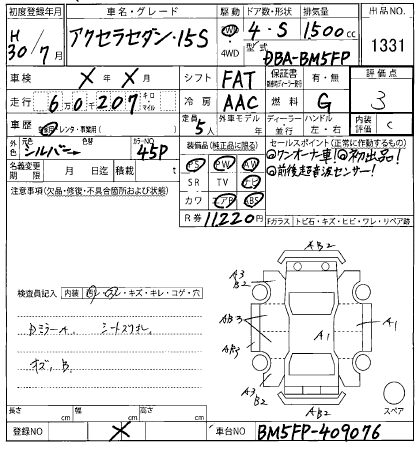 初度登録年月 車名・グレード 駆動 ドア数・形状 排気量 出品NO.
H 30/7月 アクセラセダン・15S 2WD 4WD 4・S 1500cc 1331
型式 DBA-BM5FP
車検 X年X月 シフト FAT 保証書 有・無 評価点 3
走行 6万0千207 キロ・マイル 冷房 AAC 燃料 G
車歴 自家用・レンタ・事業用( ) 定員 5人 外車モデル 年 ディーラー・並行 ハンドル 左・右 内装評価 C
外色 元色 シルバー 色替 カラーNO 45P 装備品(純正品に限る) セールスポイント(正常に作動するもの)
名義変更期限 月 日迄 積載 t PS PW AW ◎ワンオーナー車!◎初出品!
注意事項(欠品・修復・不具合箇所および状態) SR TV ナビ ◎前後超音波センサー!
カワ エアB ABS
R券 11,220円 Fガラス トビ石・キズ・ヒビ・ワレ・リペア跡
検査員記入 内装 ・キズ・キレ・コゲ・穴
Dミラー A シートスリキレ
キズ、B
AB2
A3 B2
A3 B2
AB3
A1
A1
AB3
A3 B2
A3 B2
AB2
スペア
長さ cm 幅 cm 高さ cm
登録NO X 車台NO BM5FP-409076